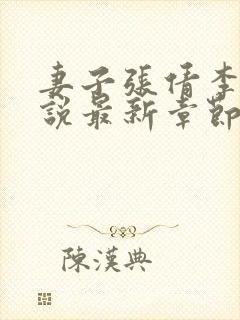 妻子張倩李
說最新章節
陳漢典